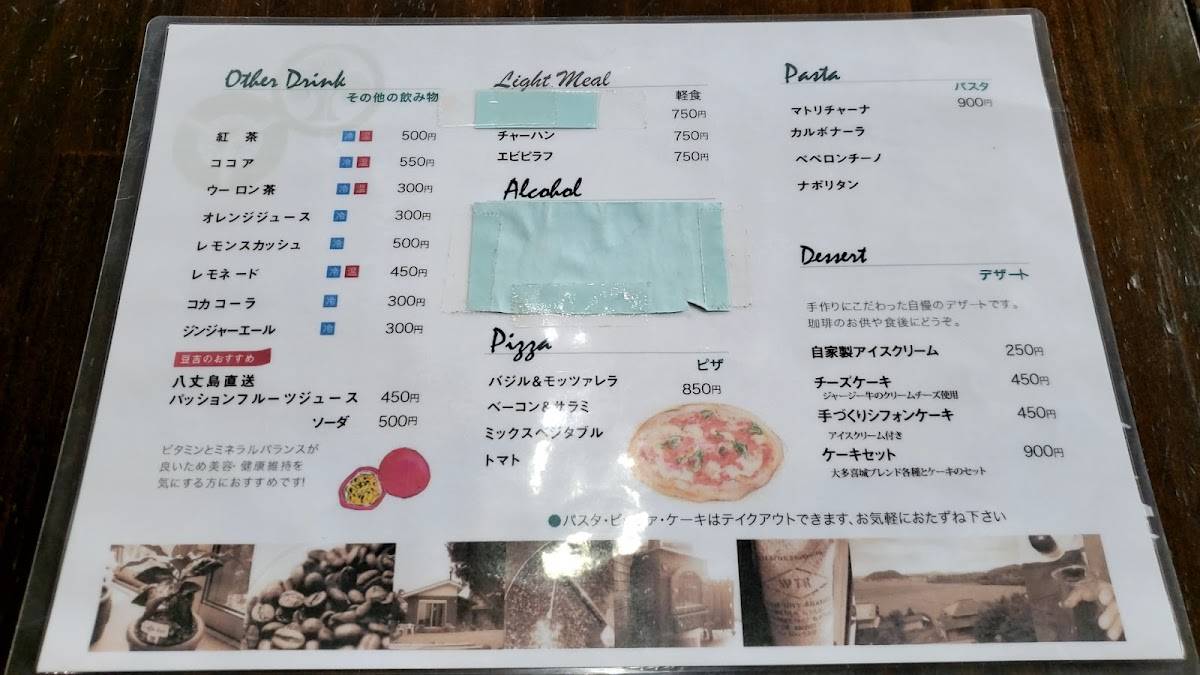 Other Drink
その他の飲み物
紅茶 冷 温 500円
ココア 冷 温 550円
ウーロン茶 冷 温 300円
オレンジジュース 冷 300円
レモンスカッシュ 冷 500円
レモネード 冷 温 450円
コカコーラ 冷 300円
ジンジャーエール 冷 300円
豆吉のおすすめ
八丈島直送
パッションフルーツジュース 450円
ソーダ 500円
ビタミンとミネラルバランスが
良いため美容・健康維持を
気にする方におすすめです!
Light Meal
軽食
750円
チャーハン 750円
エビピラフ 750円
Alcohol
Pizza
ピザ
バジル&モッツァレラ 850円
ベーコン&サラミ
ミックスベジタブル
トマト
Pasta
パスタ
マトリチャーナ 900円
カルボナーラ
ペペロンチーノ
ナポリタン
Dessert
デザート
手作りにこだわった自慢のデザートです。
珈琲のお供や食後にどうぞ。
自家製アイスクリーム 250円
チーズケーキ 450円
ジャージー牛のクリームチーズ使用
手づくりシフォンケーキ 450円
アイスクリーム付き
ケーキセット 900円
大多喜城ブレンド各種とケーキのセット
●パスタ・ピッツァ・ケーキはテイクアウトできます、お気軽におたずね下さい